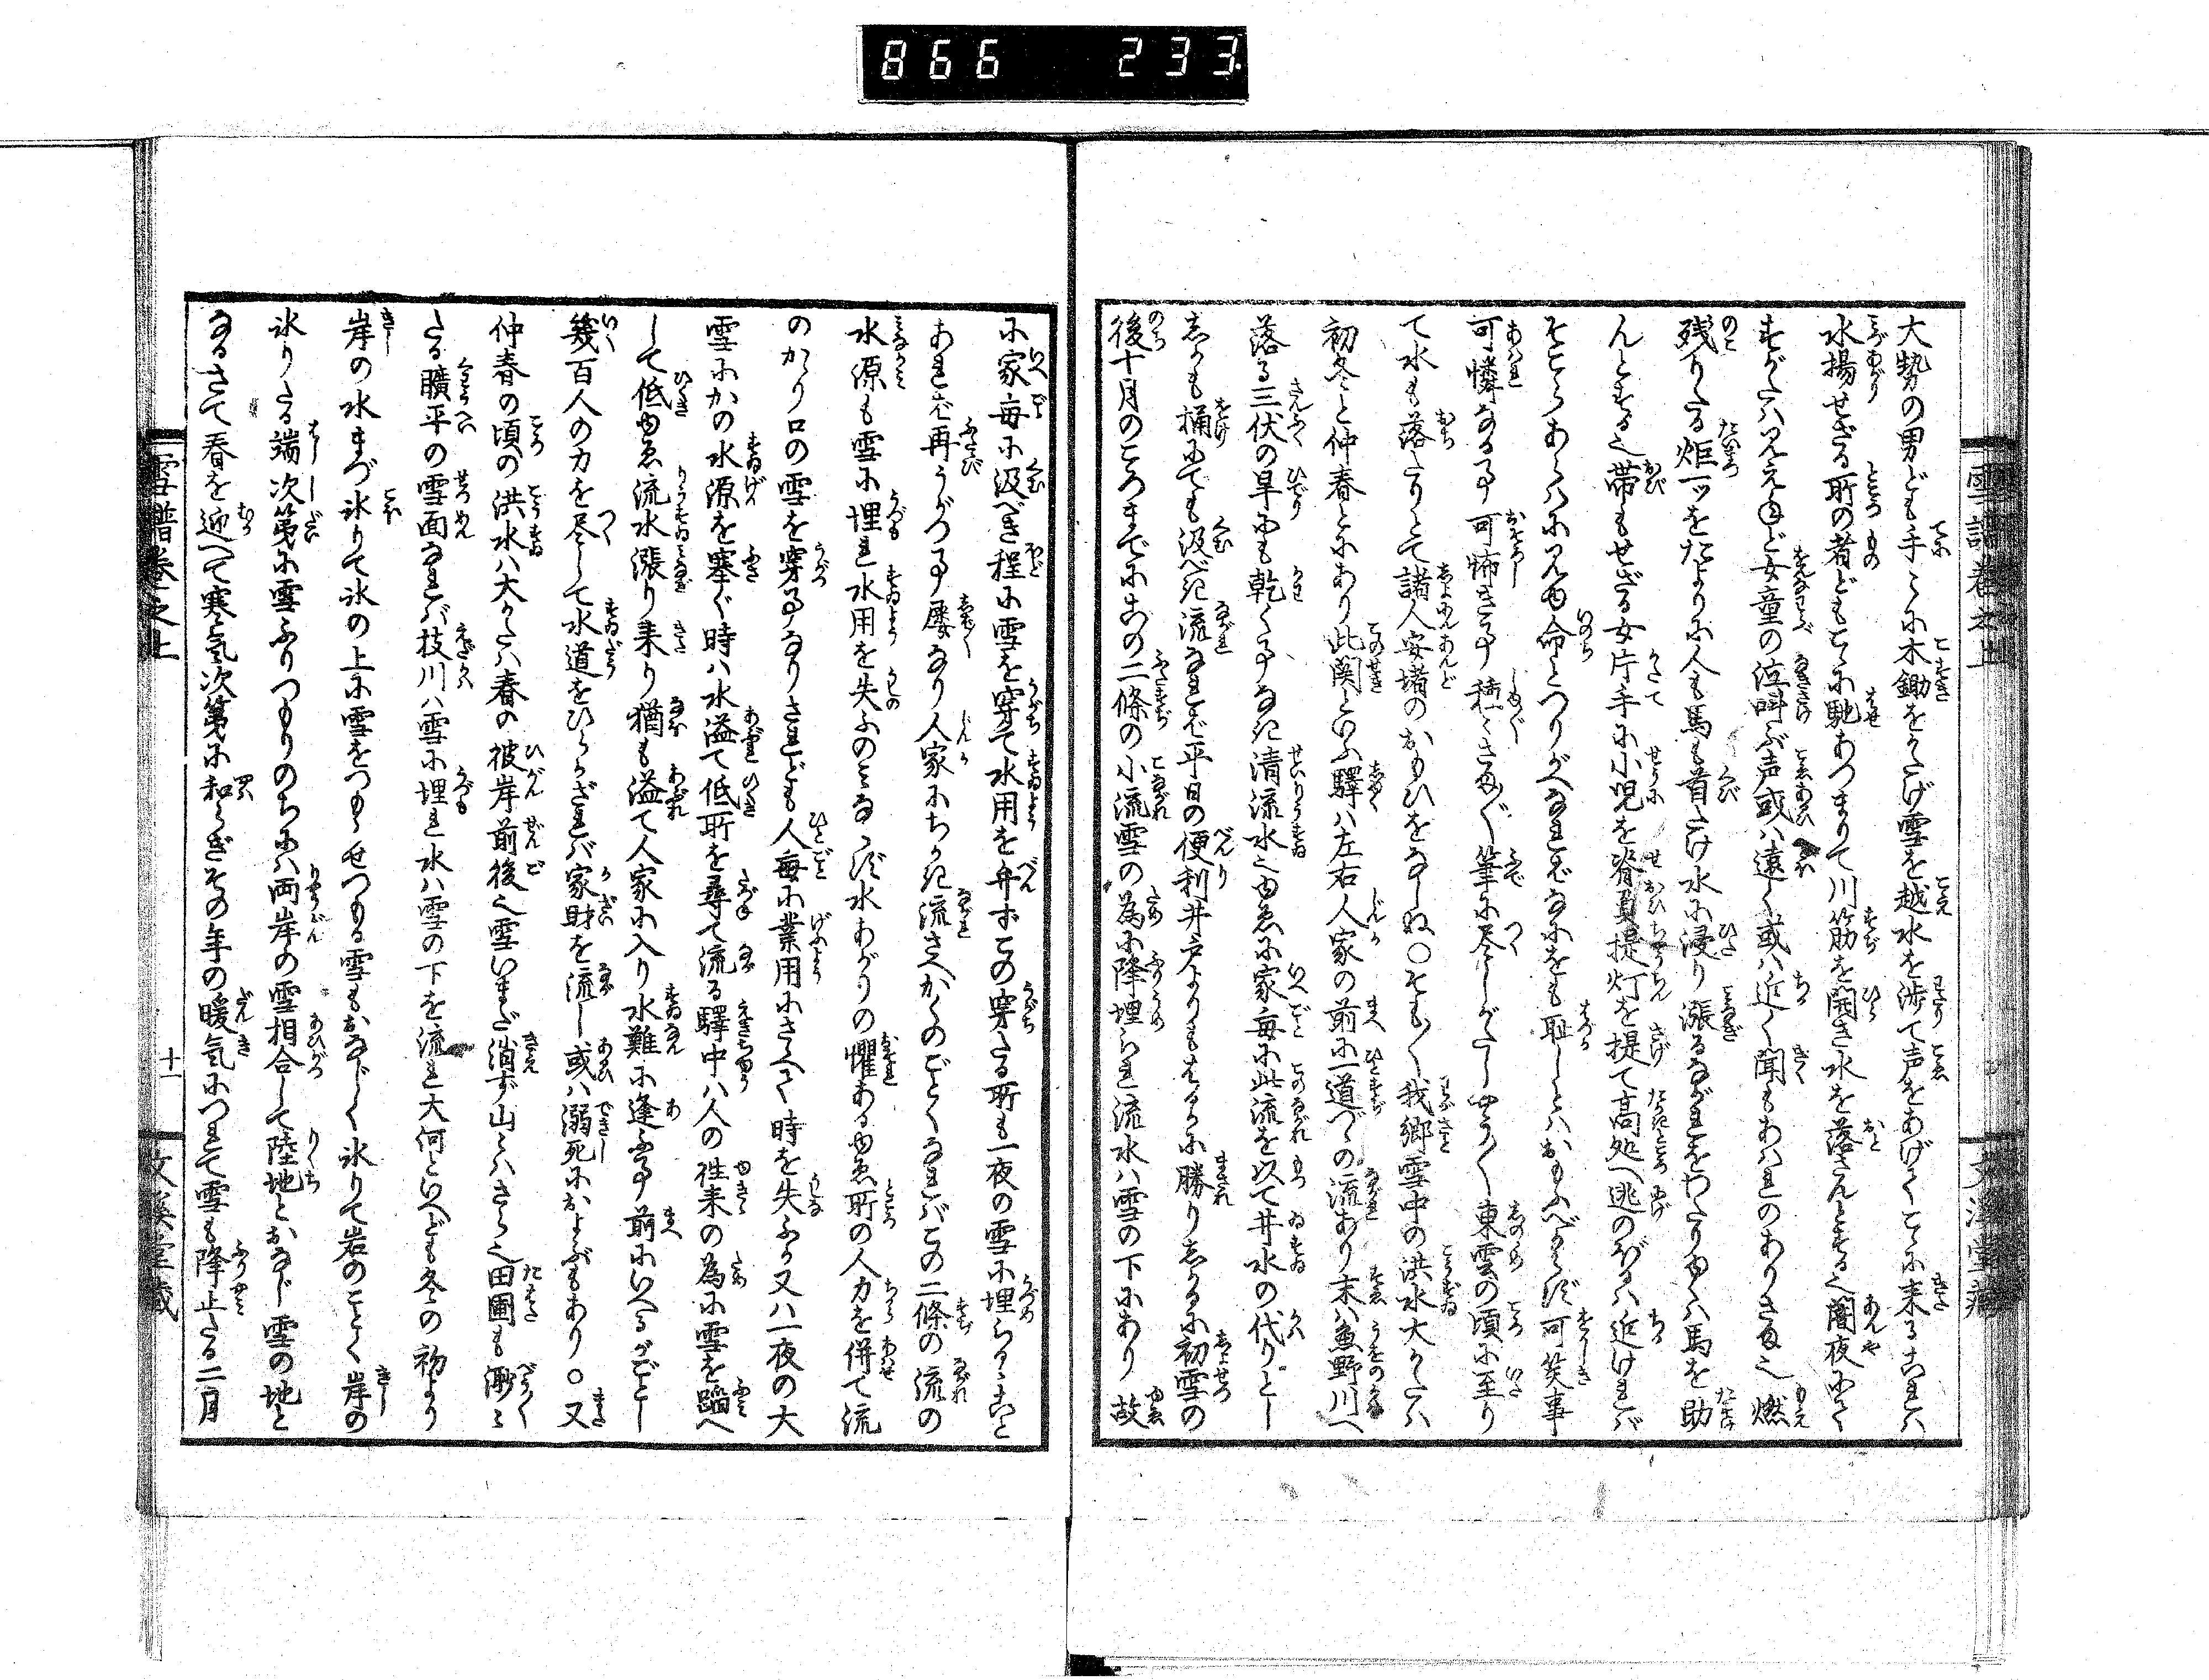 雪譜巻之上
文溪堂藏
大勢の男ども手〻に木鋤をかたげ雪を越水を渉て声をあげてこゝに来るこれハ
水揚せざる所の者どもこゝに馳あつまりて川筋を開き水を落さんとする也闇夜にて
すがたハ見えねど女童の泣叫ぶ声或ハ遠く或ハ近く聞もあはれのありさま也燃
残りたる炬一ツをたよりに人も馬も首たけ水に浸り漲るながれをわたりゆくハ馬を助
んとする也帯もせざる女片手に小児を脊負提灯を提て高処へ逃のぼるハ近ければ
そこらあらハに見ゆ命とつりがへなればなにをも恥しとハおもふべからず可笑事
可憐なる事可怖き事種〻さま〴〵筆に尽しがたしやう〳〵東雲の頃に至り
て水も落たりとて諸人安堵のおもひをなしぬ〇そも〳〵我郷雪中の洪水大かたハ
初冬と仲春とにあり此関といふ驛ハ左右人家の前に一道づゝの流あり末ハ魚野川へ
落る三伏の旱にも乾く事なき清流水也ゆゑに家毎に此流を以て井水の代りとし
しかも桶にても汲べき流なれば平日の便利井戸よりもはるかに勝りしかるに初雪の
後十月のころまでにこの二條の小流雪の為に降埋られ流水ハ雪の下にあり故
に家毎に汲べき程に雪を穿て水用を弁ずこの穿たる所も一夜の雪に埋らるゝこと
あれば再うがつ事屡なり人家にちかき流さへかくのごとくなればこの二條の流の
水源も雪に埋れ水用を失ふのみならず水あがりの懼あるゆゑ所の人力を併て流
のかゝり口の雪を穿事なりされども人毎に業用にさゝへて時を失ふか又ハ一夜の大
雪にかの水源を塞ぐ時ハ水溢て低所を尋て流る驛中ハ人の徃来の為に雪を蹈へ
して低ゆゑ流水漲り来り猶も溢て人家に入り水難に逢ふ事前にいへるがごとし
幾百人の力を尽して水道をひらかざれバ家財を流し或ハ溺死におよぶもあり〇又
仲春の頃の洪水ハ大かたハ春の彼岸前後也雪いまだ消ず山〻ハさら也田圃も渺〻
たる曠平の雪面なれバ枝川ハ雪に埋れ水ハ雪の下を流れ大河といへども冬の初より
岸の水まづ氷りて氷の上に雪をつもらせつもる雪もおなじく氷りて岩のごとく岸の
氷りたる端次第に雪ふりつもりのちにハ両岸の雪相合して陸地とおなじ雪の地と
なるさて春を迎へて寒気次第に和らぎその年の暖気につれて雪も降止たる二月
雪譜巻之上
十一
文溪堂藏
866 233